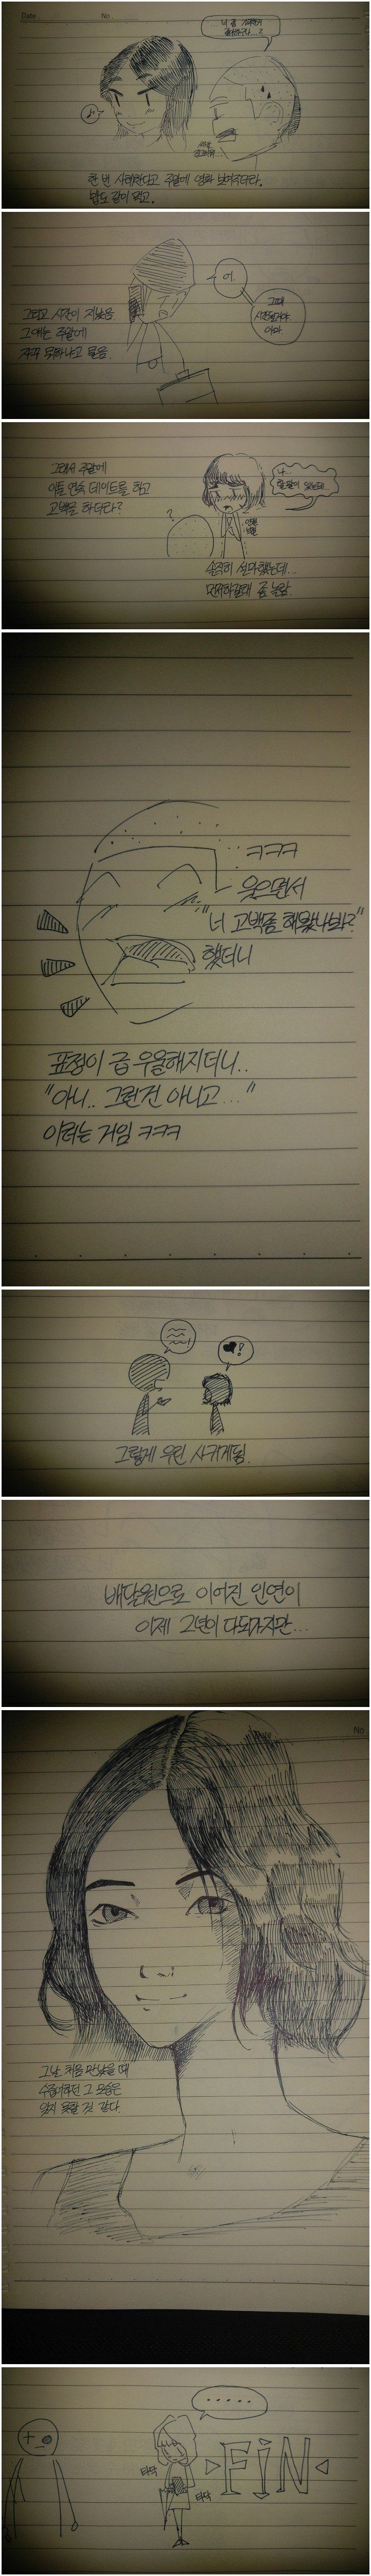 Date
No
너 좀
한 번 사례한다고 주말에 영화 보여주더라.
밥도 같이 먹고.
그리고 시간이 지났음
그애는 주말에
자꾸 뭐하냐고 물음
어.
그래
아마
그래서 주말에
이틀 연속 데이트를 하고
고백을 하더라?
?
나...
할말이 있는데...
솔직히 설마했는데...
먼저하길래 좀 놀람.
ㅋㅋㅋ
웃으면서
"너 고백좀 해봤나봐?"
했더니
표정이 급 우울해지더니..
"아니.. 그런건 아니고..."
이러는 거임 ㅋㅋㅋ
♥!
그렇게 우린 사귀게됨.
배달원으로 이어진 인연이
이제 2년이 다되가지만...
No
그날 처음 만났을 때
수줍어하던 그 모습은
잊지 못할 것 같다.
......
타닥
타닥
FiN